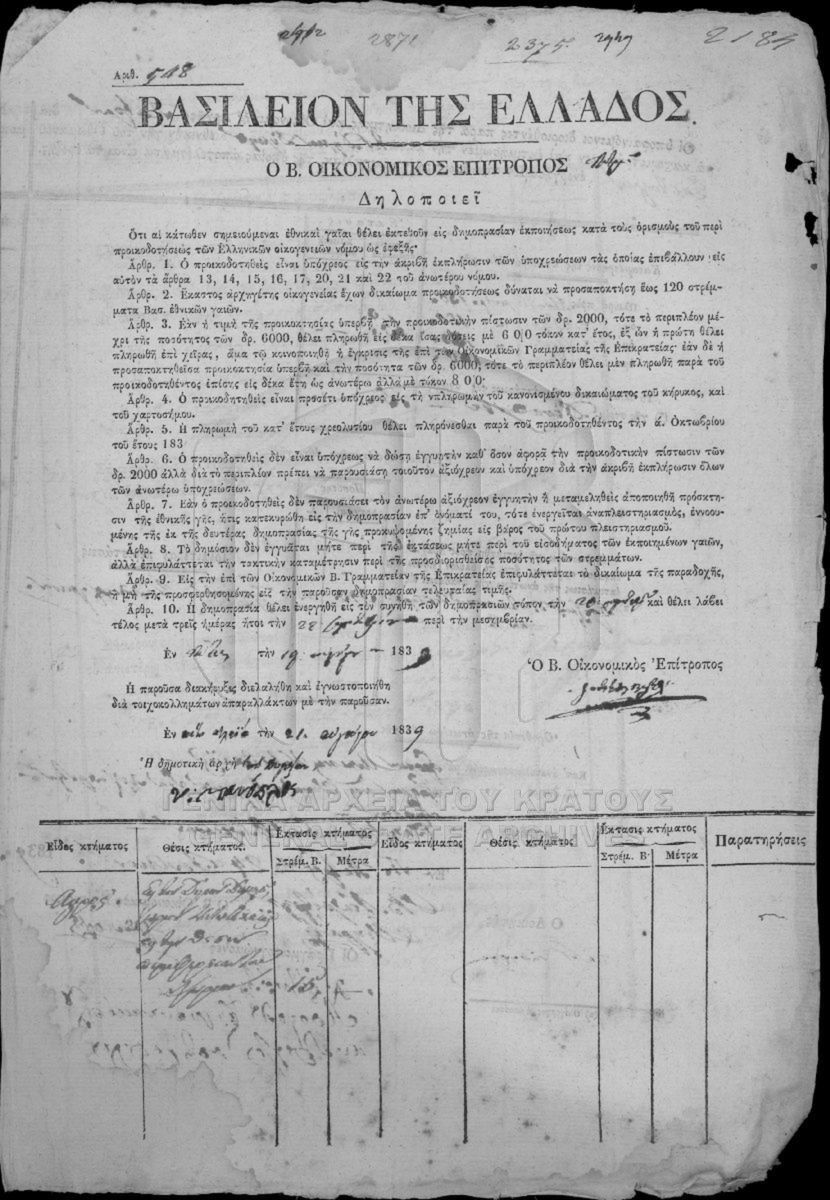 2871 2375. 2929 2184
Αριθ. 518
ΒΑΣΙΛΕΙΟΝ ΤΗΣ ΕΛΛΑΔΟΣ.
Ο Β. ΟΙΚΟΝΟΜΙΚΟΣ ΕΠΙΤΡΟΠΟΣ
Δηλοποιεῖ
Ὅτι αἱ κάτωθεν σημειούμεναι ἐθνικαὶ γαῖαι θέλει ἐκτεθοῦν εἰς δημοπρασίαν ἐκποιήσεως κατὰ τοὺς ὁρισμοὺς τοῦ περὶ
προικοδοτήσεως τῶν Ἑλληνικῶν οἰκογενειῶν νόμου ὡς ἐφεξῆς·
Ἄρθρ. 1. Ὁ προικοδοτηθεὶς εἶναι ὑπόχρεος εἰς τὴν ἀκριβῆ ἐκπλήρωσιν τῶν ὑποχρεώσεων τὰς ὁποίας ἐπιβάλλουν εἰς
αὐτὸν τὰ ἄρθρα 13, 14, 15, 16, 17, 20, 21 καὶ 22 τοῦ ἀνωτέρω νόμου.
Ἄρθρ. 2. Ἕκαστος ἀρχηγέτης οἰκογενείας ἔχων δικαίωμα προικοδοτήσεως δύναται νὰ προσαποκτήσῃ ἕως 120 στρέμ-
ματα Βασ. ἐθνικῶν γαιῶν.
Ἄρθρ. 3. Ἐὰν ἡ τιμὴ τῆς προικοκτησίας ὑπερβῇ τὴν προικοδοτικὴν πίστωσιν τῶν δρ. 2000, τότε τὸ περιπλέον μέ-
χρι τῆς ποσότητος τῶν δρ. 6000, θέλει πληρωθῆ εἰς δέκα ἴσας δόσεις μὲ 6 0|0 τόκον κατ' ἔτος, ἐξ ὧν ἡ πρώτη θέλει
πληρωθῆ ἐπὶ χεῖρας, ἅμα τῷ κοινοποιηθῇ ἡ ἔγκρισις τῆς ἐπὶ τῶν Οἰκονομικῶν Γραμματείας τῆς Ἐπικρατείας· ἐὰν δὲ ἡ
προσαποκτηθεῖσα προικοκτησία ὑπερβῇ καὶ τὴν ποσότητα τῶν δρ. 6000, τότε τὸ περιπλέον θέλει μὲν πληρωθῆ παρὰ τοῦ
προικοδοτηθέντος ἐπίσης εἰς δέκα ἔτη ὡς ἀνωτέρω ἀλλὰ μὲ τόκον 8 0|0·
Ἄρθρ. 4. Ὁ προικοδοτηθεὶς εἶναι προσέτι ὑπόχρεος εἰς τὴν πληρωμὴν τοῦ κανονισμένου δικαιώματος τοῦ κήρυκος, καὶ
τοῦ χαρτοσήμου.
Ἄρθρ. 5. Ἡ πληρωμὴ τοῦ κατ' ἔτους χρεολυσίου θέλει πληρόνεσθαι παρὰ τοῦ προικοδοτηθέντος τὴν ά. Ὀκτωβρίου
τοῦ ἔτους 183
Ἄρθρ. 6. Ὁ προικοδοτηθεὶς δὲν εἶναι ὑπόχρεως νὰ δώσῃ ἐγγυητὴν καθ' ὅσον ἀφορᾷ τὴν προικοδοτικὴν πίστωσιν τῶν
δρ. 2000 ἀλλὰ διὰ τὸ περιπλέον πρέπει νὰ παρουσιάσῃ τοιοῦτον ἀξιόχρεον καὶ ὑπόχρεον διὰ τὴν ἀκριβῆ ἐκπλήρωσιν ὅλων
τῶν ἀνωτέρω ὑποχρεώσεων.
Ἄρθρ. 7. Ἐὰν ὁ προικοδοτηθεὶς δὲν παρουσιάσει τὸν ἀνωτέρω ἀξιόχρεον ἐγγυητὴν ἢ μεταμεληθεὶς ἀποποιηθῇ πρόσκτη-
σιν τῆς ἐθνικῆς γῆς, ἥτις κατεκυρώθη εἰς τὴν δημοπρασίαν ἐπ' ὀνόματί του, τότε ἐνεργεῖται ἀναπλειστηριασμὸς, ἐννοου-
μένης τῆς ἐκ τῆς δευτέρας δημοπρασίας τῆς γῆς προκυψομένης ζημίας εἰς βάρος τοῦ πρώτου πλειστηριασμοῦ.
Ἄρθρ. 8. Τὸ δημόσιον δὲν ἐγγυᾶται μήτε περὶ τῆς ἐκτάσεως μήτε περὶ τοῦ εἰσοδήματος τῶν ἐκποιημένων γαιῶν,
ἀλλὰ ἐπιφυλάττεται τὴν τακτικὴν καταμέτρησιν περὶ τῆς προσδιορισθείσης ποσότητος τῶν στρεμμάτων.
Ἄρθρ. 9. Εἰς τὴν ἐπὶ τῶν Οἰκονομικῶν Β. Γραμματείαν τῆς Ἐπικρατείας ἐπιφυλάττεται τὸ δικαίωμα τῆς παραδοχῆς,
ἢ μὴ τῆς προσφερθησομένης εἰς τὴν παροῦσαν δημοπρασίαν τελευταίας τιμῆς.
Ἄρθρ. 10. Ἡ δημοπρασία θέλει ἐνεργηθῆ εἰς τὸν συνήθη τῶν δημοπρασιῶν τόπον τὴν 20 καὶ θέλει λάβει
τέλος μετὰ τρεῖς ἡμέρας ἤτοι τὴν 22 περὶ τὴν μεσημβρίαν.
Ἐν τὴν 19 183
Ὁ Β. Οἰκονομικὸς Ἐπίτροπος
Ἡ παροῦσα διακήρυξις διελαλήθη καὶ ἐγνωστοποιήθη
διὰ τοιχοκολλημάτων ἀπαραλλάκτων μὲ τὴν παροῦσαν.
Ἐν τὴν 21 1839
Ἡ δημοτικὴ ἀρχὴ
ΓΕΝΙΚΑ ΑΡΧΕΙΑ ΤΟΥ ΚΡΑΤΟΥΣ
GENERAL STATE ARCHIVES
Εἶδος κτήματος Θέσις κτήματος. Ἔκτασις κτήματος Εἶδος κτήματος Θέσις κτήματος Ἔκτασις κτήματος Παρατηρήσεις
Στρέμ. Β. Μέτρα Στρέμ. Β· Μέτρα